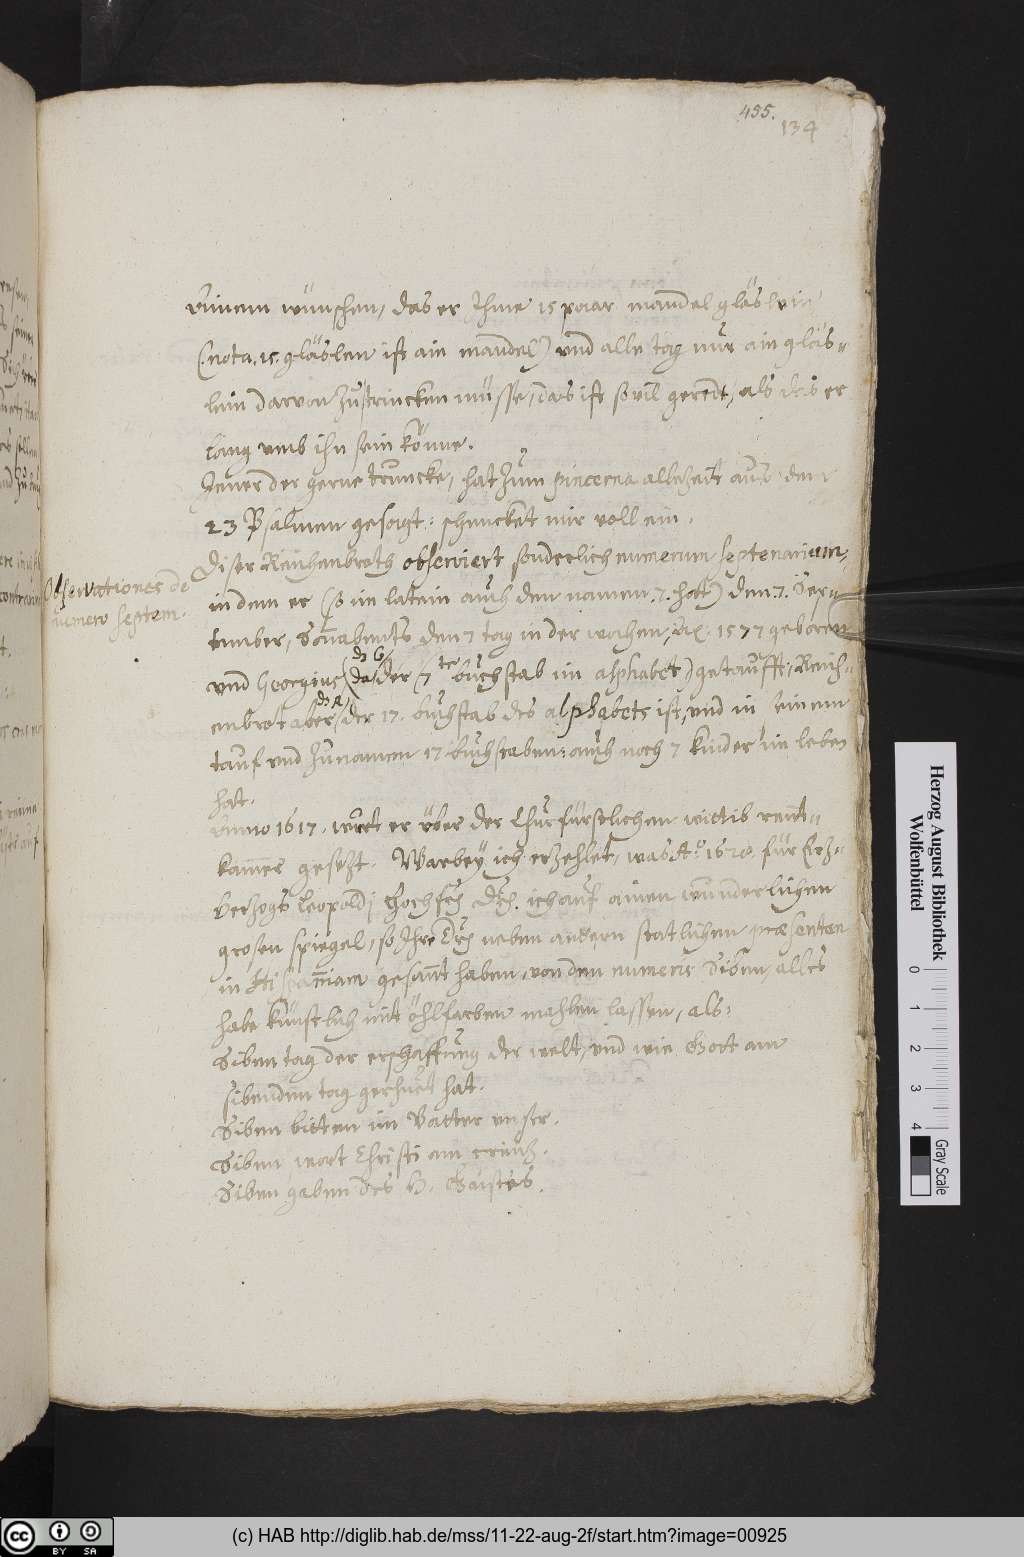 455.
134
einem wünschen, das er Ihme 15 paar mandel gläslein
(nota. 15. gläslen ist ain mandel) und alle tag nur ain gläs-
lein darvon Zustrincken müsse, das ist sovil geredt, als das er
lang umb ihn sein könne.
Jener der gerne truncke, hat Zum pincerna allezeit aus dem
23 Psalmen gesagt: schencket mir voll ein.
Diser Reuhenbroth observiert sonderlich numerum septenarium,
in dem er (so im latein auch den namen .7. hat) den .7. Sep-
tember, Sonabents den 7 tag in der wochen, 1577 geboren
und Georgius (das G der 7te buchstab im alphabet) getaufft, Reich-
enbrot aber, der 17. buchstab des alphabets ist, und in seinem
tauf und Zunamen 17 buchstaben: auch noch 7 kinder im leben
hat.
Observationes de
numero septem.
Anno 1617. wirt er über der Churfürstlichen wittib rent-
kamer gesetzt. Warbey ich erzehlet, was Aº. für Erz-
herzogs Leopoldj Hochfr. Dr. ich auf ainen wunderlichen
grosen spiegel, so Ihre Dr. neben andern statlichen præsenten
in Hispaniam gesant haben, von dem numero Siben, alles
habe künstlich mit öhlfarben mahlen lassen, als:
Siben tag der erschaffung der welt, und wie Gott am
sibenden tag geruhet hat.
Siben bitten im Vatter unser.
Siben wort Christi am creutz.
Siben gaben des H. Gaistes.
Herzog August Bibliothek
Wolfenbüttel
0 1 2 3 4
Gray Scale
CC BY SA
(c) HAB http://diglib.hab.de/mss/11-22-aug-2f/start.htm?image=00925